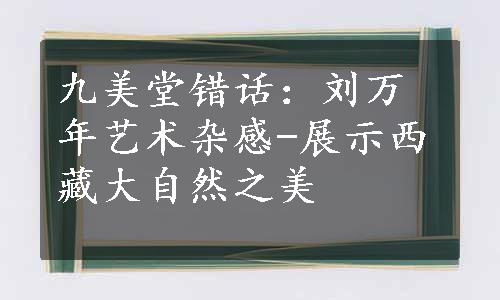 九美堂错话：刘万
年艺术杂感-展示西
藏大自然之美